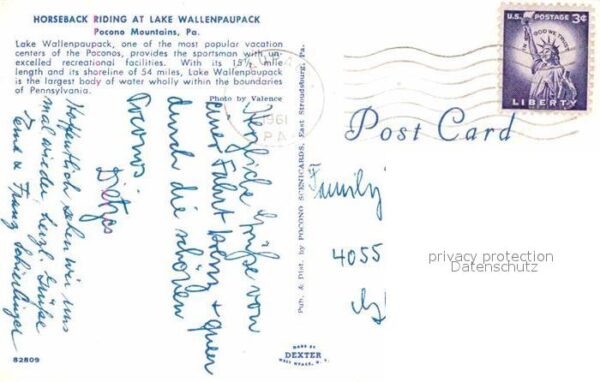 HORSEBACK RIDING AT LAKE WALLENPAUPACK
Pocono Mountains, Pa.
Lake Wallenpaupack, one of the most popular vacation
centers of the Poconos, provides the sportsman with un-
excelled recreational facilities. With its 15½ mile
length and its shoreline of 54 miles, Lake Wallenpaupack
is the largest body of water wholly within the boundaries
of Pennsylvania.
Photo by Valence
Herzliche Grüße von
einer Fahrt kreuz + quer
durch die schönen
Poconos
Hoffentlich sehen wir uns
mal wieder, herzl. Grüße
u. Franz
82809
Pub. & Dist. by POCONO SCENICARDS, East Stroudsburg, Pa.
MADE BY
DEXTER
WEST NYACK, N. Y.
1961
U.S. POSTAGE 3¢
IN GOD WE TRUST
LIBERTY
Post Card
Family
4055
privacy protection
Datenschutz